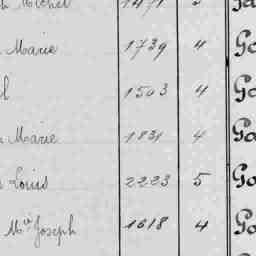 Michel 1471
Marie 1739 4 Ga
1503 4 Ga
Marie 1831 4 Ga
Louis 2223 5 Ga
Mie Joseph 1618 4 Ga